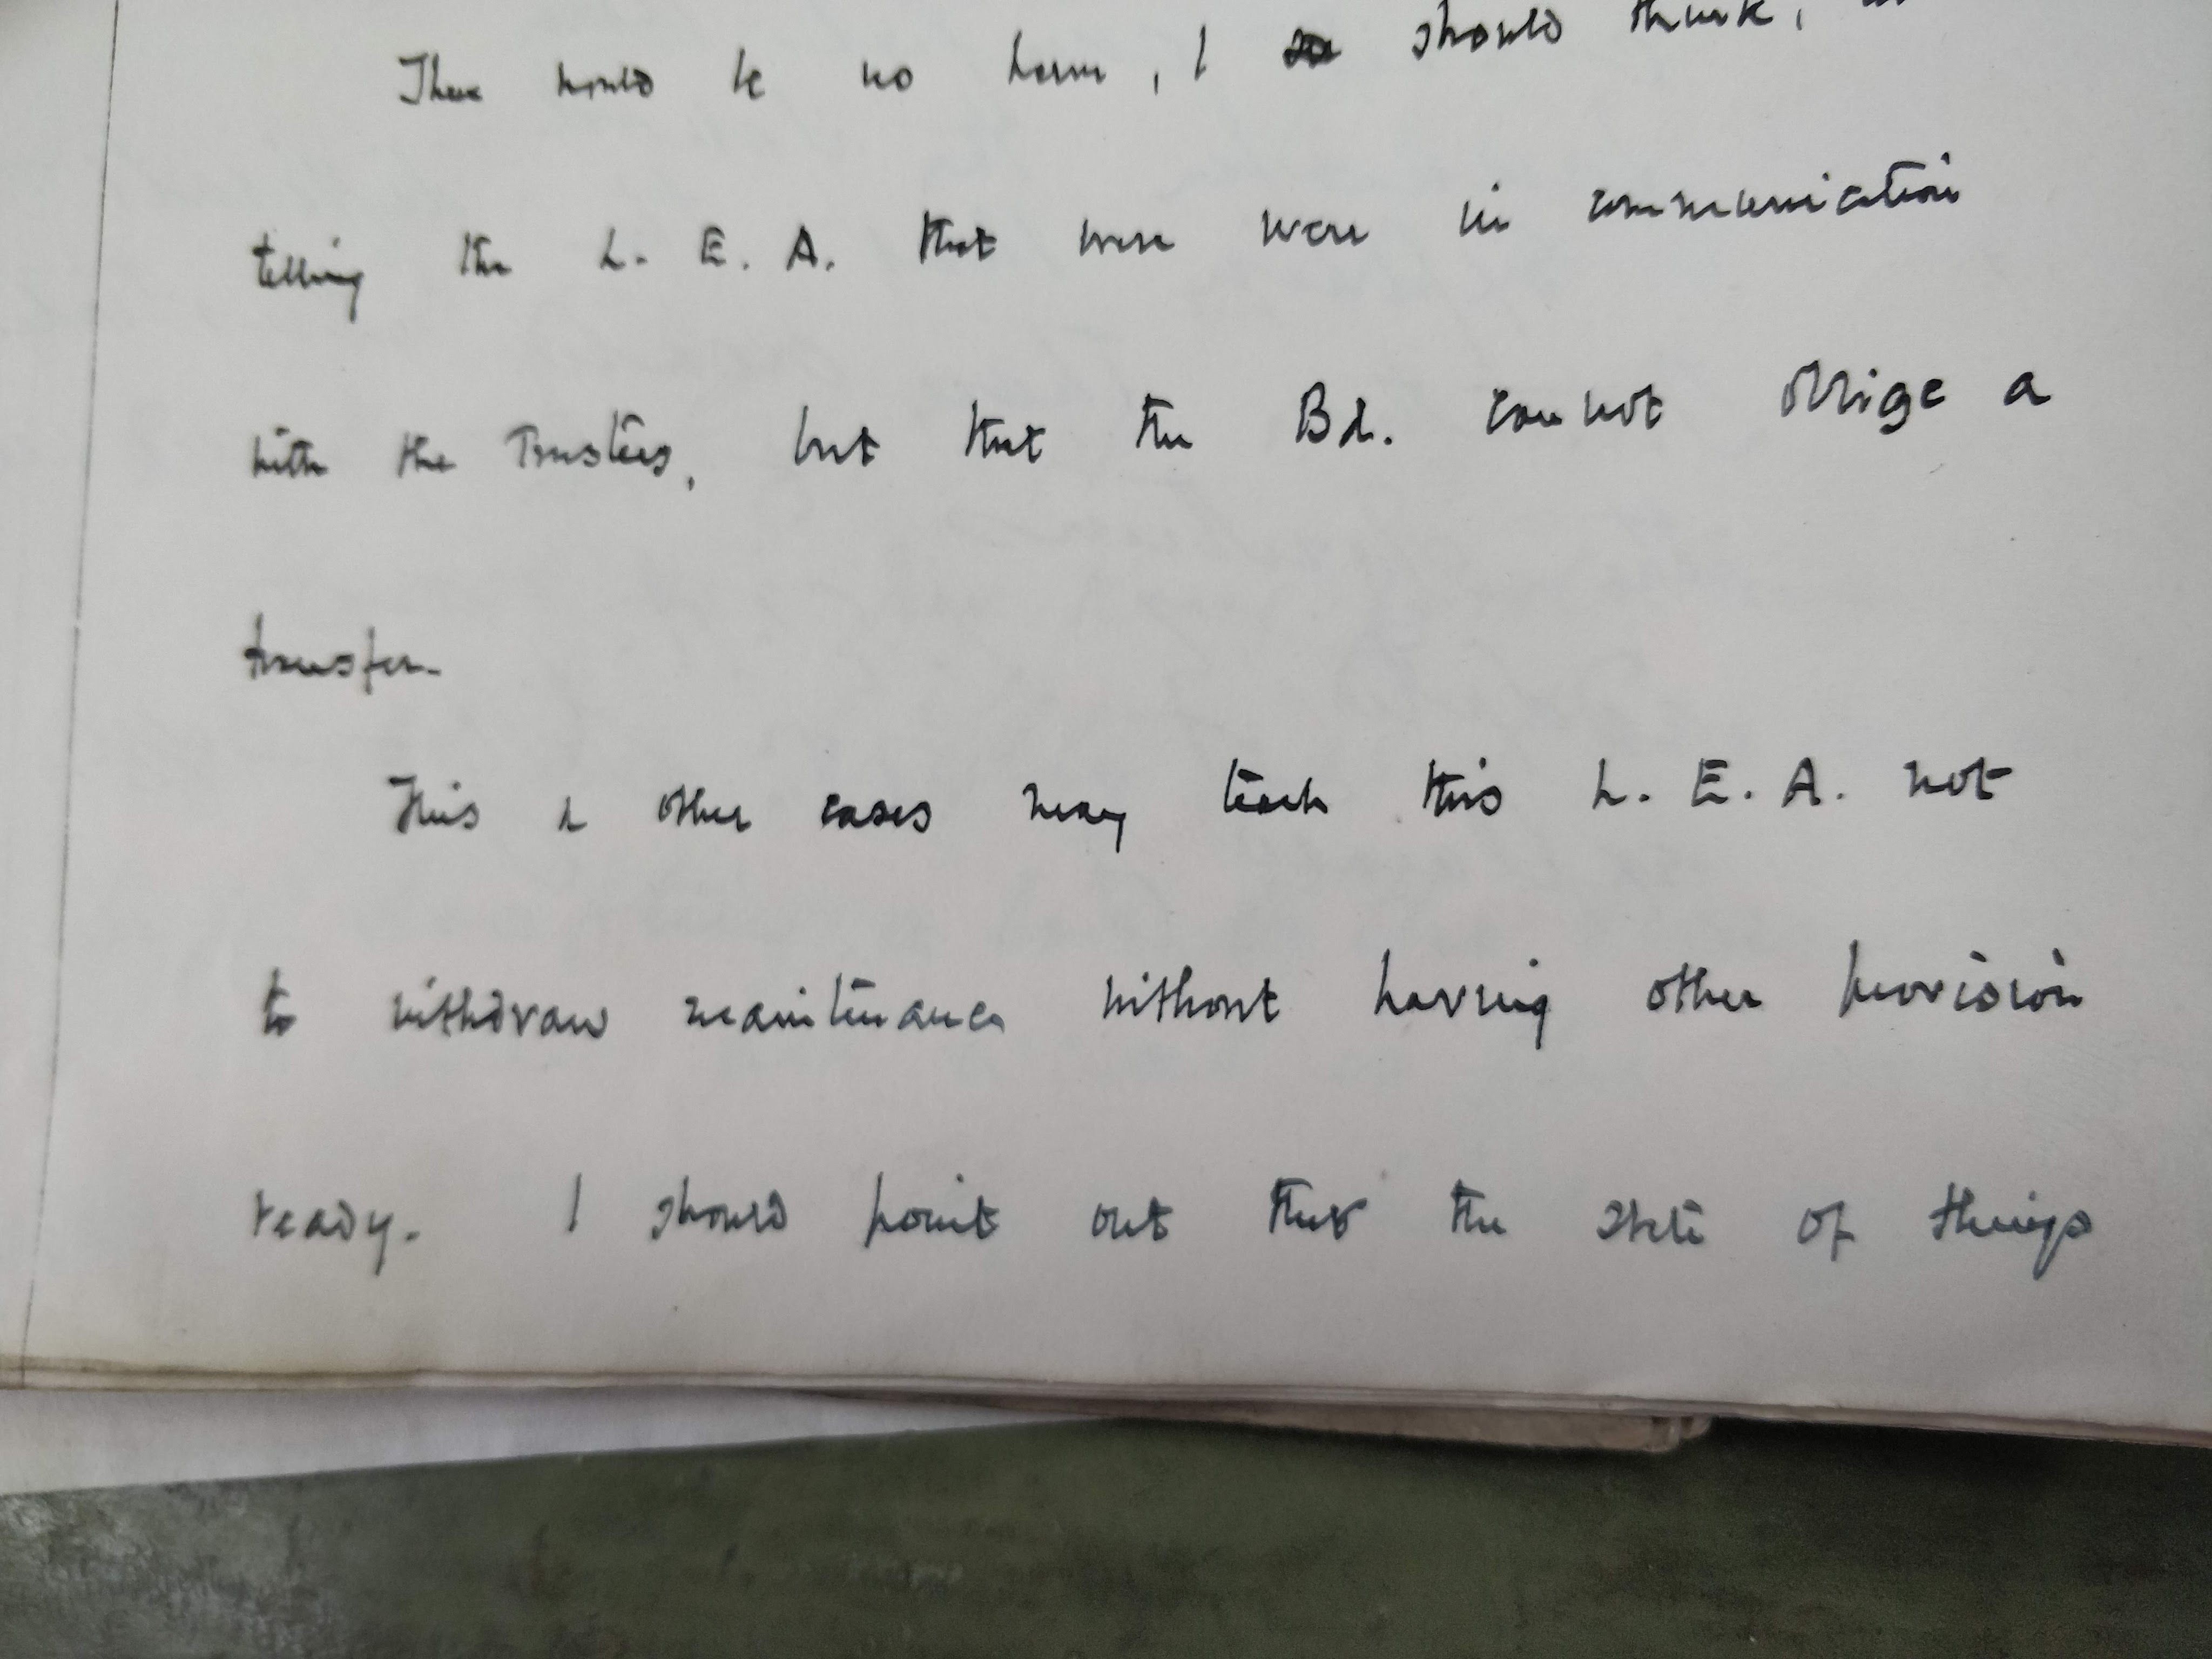 There would be no harm, I should think, in
telling the L. E. A. that were were in communication
with the Trustees, but that the Bd. cannot oblige a
transfer.
This & other cases may teach this L. E. A. not
to withdraw maintenance without having other provision
ready. I should point out that the state of things